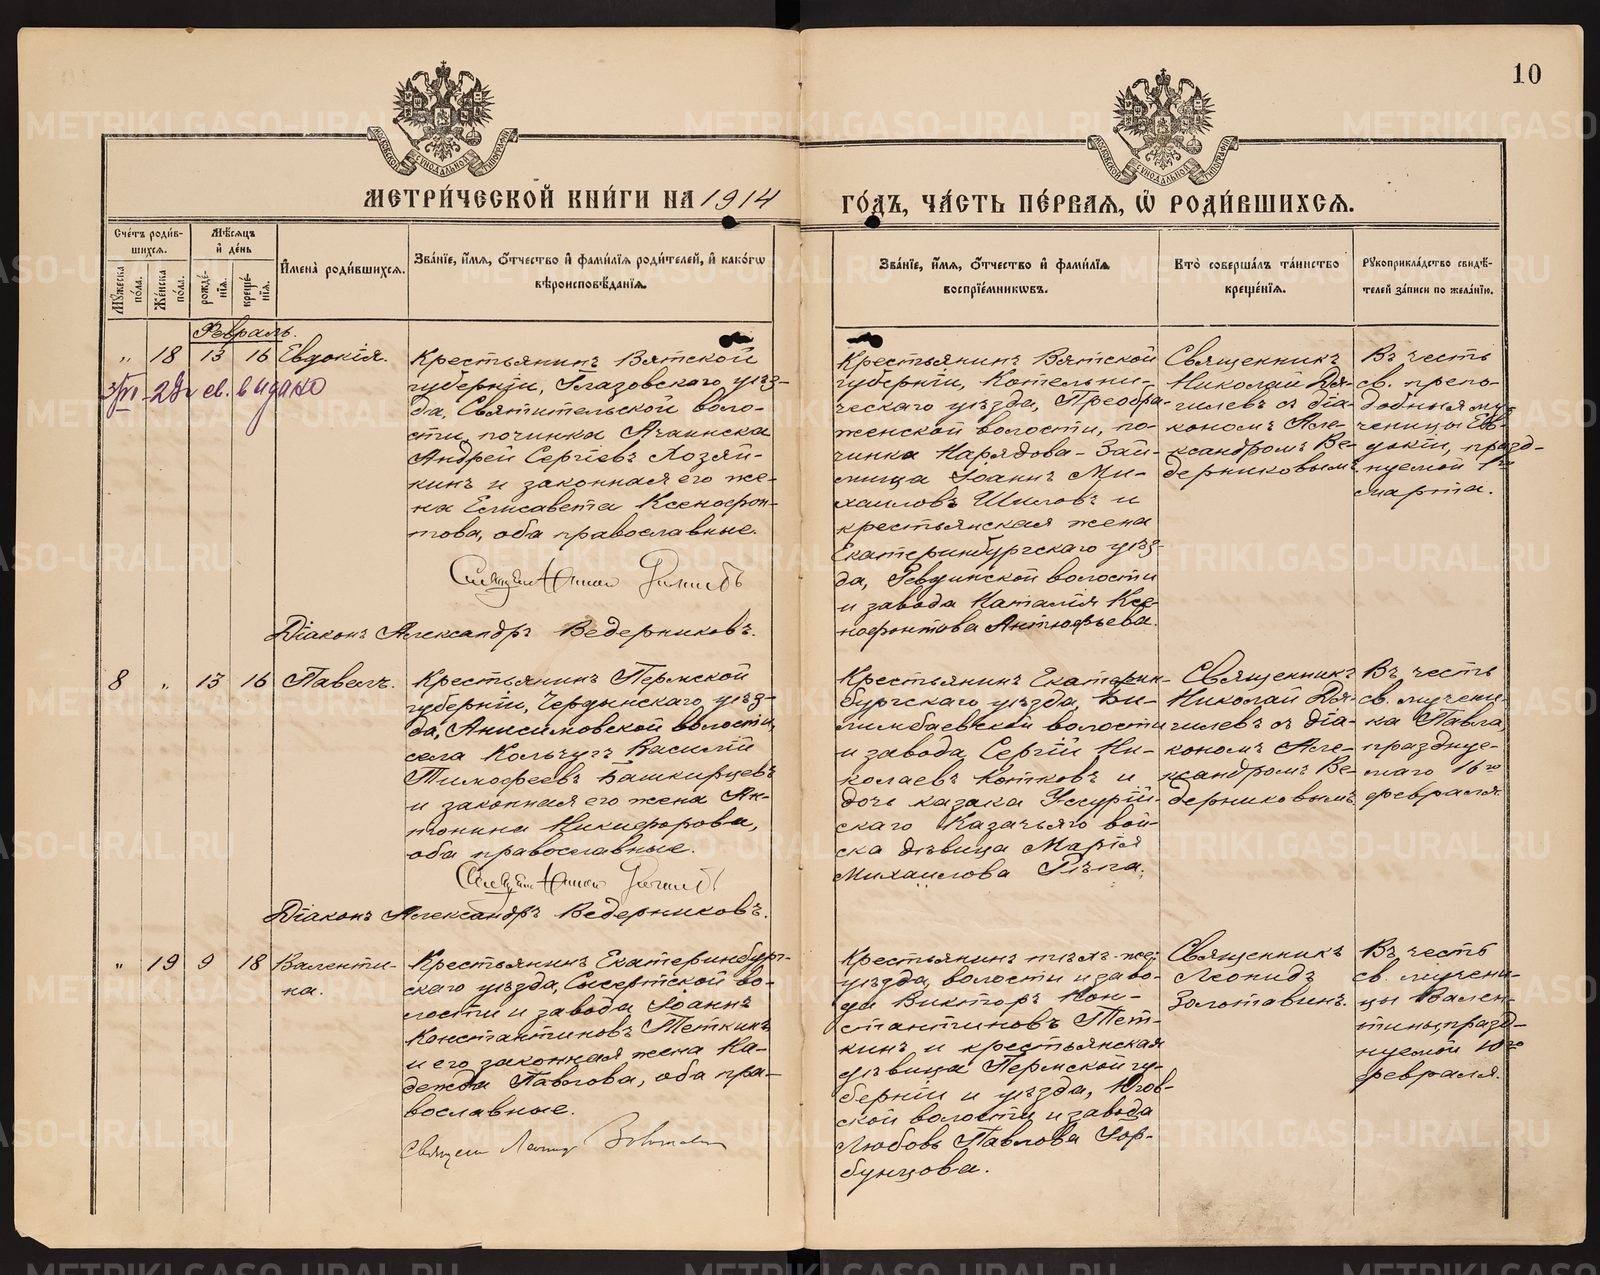 10
МЕТРИ́ЧЕСКОЙ КНИ́ГИ НА 1914
ГО́ДЪ, ЧА́СТЬ ПЕ́РВАЯ, Ѡ РОДИ́ВШИХСЯ.
Сче́тъ роди́в-
шихся.
Мꙋ́жеска по́ла.
Же́нска по́ла.
Мѣ́сяцъ
и҆ де́нь
рожде́-
нїя.
креще́-
нїя.
И҆мена̀ роди́вшихся.
Зва́нїе, и҆́мя, ѻ҆́тчество и҆ фами́лїя роди́телей, и҆ како́гѡ
вѣроисповѣ́данїя.
Зва́нїе, и҆́мя, ѻ҆́тчество и҆ фами́лїя
воспрїе́мникѡвъ.
Кто̀ соверша́лъ та́инство
креще́нїя.
Рꙋкоприкла́дство свидѣ́-
телей за́писи по жела́нїю.
Февраль.
" 18 13 16 Евдокія.
св. видано
Крестьянинъ Вятской
губерніи, Глазовскаго уѣз-
да, Святительской воло-
сти, починка
Андрей Сергіевъ Хозяй-
кинъ и законная его же-
на Елисавета Ксенофон-
това, оба православные.
Діаконъ Александръ Ведерниковъ.
Крестьянинъ Вятской
губерніи, Котельни-
ческаго уѣзда, Преобра-
женской волости, по-
чинка Карядова-Зай-
мища Іоаннъ Ми-
хаиловъ Шиловъ и
крестьянская жена
Екатеринбургскаго уѣз-
да, Ревдинской волости
и завода Наталія Ксе-
нофонтова Антюфьева.
Священникъ
Николай Дя-
гилевъ съ діа-
кономъ Але-
ксандромъ Ве-
дерниковымъ
Въ честь
св. препо-
добныя му-
ченицы Ев-
докіи, празд-
нуемой 1го
марта.
8 " 13 16 Павелъ.
Крестьянинъ Пермской
губерніи, Чердынскаго уѣз-
да, Анисимовской волости,
села Кольчугъ Василій
Тимофеевъ Башкирцевъ
и законная его жена Ан-
тонина Никифорова,
оба православные.
Діаконъ Александръ Ведерниковъ.
Крестьянинъ Екатерин-
бургскаго уѣзда, Би-
лимбаевской волости
и завода Сергій Ни-
колаевъ Котковъ и
дочь казака Уссурій-
скаго Казачьяго вой-
ска дѣвица Марія
Михаилова Рѣпа.
Священникъ
Николай Дя-
гилевъ съ діа-
кономъ Але-
ксандромъ Ве-
дерниковымъ.
Въ честь
св. мучени-
ка Павла,
праздну-
маго 16го
февраля.
" 19 9 18 Валенти-
на.
Крестьянинъ Екатеринбург-
скаго уѣзда, Сысертской во-
лости и завода Іоаннъ
Константиновъ Теткинъ
и его законная жена На-
дежда Павлова, оба пра-
вославные.
Крестьянинъ тѣхъ-же
уѣзда, волости и заво-
да Викторъ Кон-
стантиновъ Тет-
кинъ и крестьянская
дѣвица Пермской гу-
берніи и уѣзда, Югов-
ской волости и завода
Любовь Павлова Гор-
бунцова.
Священникъ
Леонидъ
Золотавинъ.
Въ честь
св. мучени-
цы Вален-
тины, празд-
нуемой 10го
февраля.
METRIKI.GASO-URAL.RU